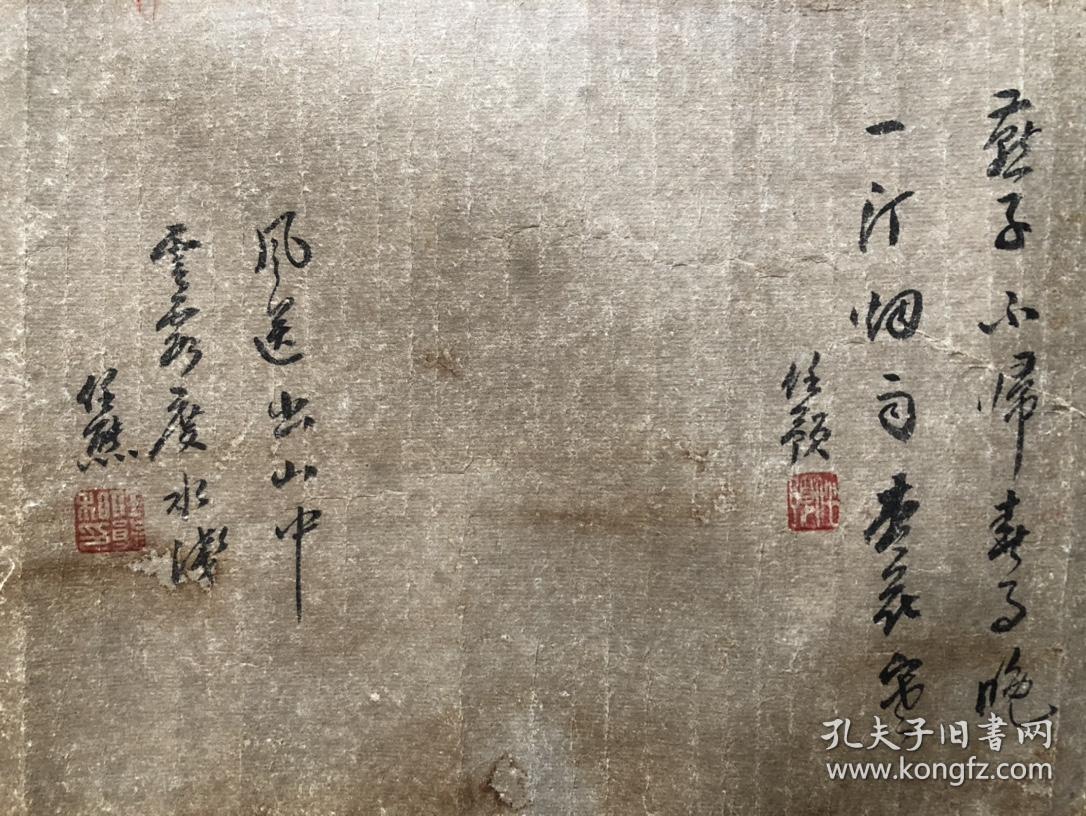 燕子不歸春事晚
一汀烟雨杏花寒
任預
風送出山中
雲霞度水
任熊
孔夫子旧书网
www.kongfz.com